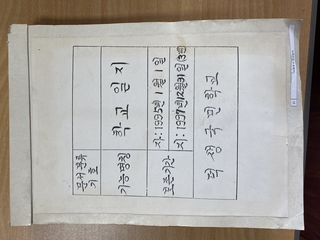 문서분류
기호
기능명칭
학교일지
보존기간
자: 1995년 1월 1일
지: 1997년 12월 31일
국민학교